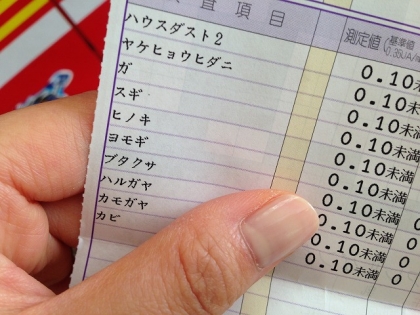 査項目 測定値 (基準値 0.35UA/m
ハウスダスト2 0.10未
ヤケヒョウヒダニ 0.10未
ガ 0.10未満
スギ 0.10未満
ヒノキ 0.10未満
ヨモギ 0.10未満 0
ブタクサ 0.10未満 0
ハルガヤ 0.10未満 0
カモガヤ 0.10未満 0
カビ 0.10未満 0